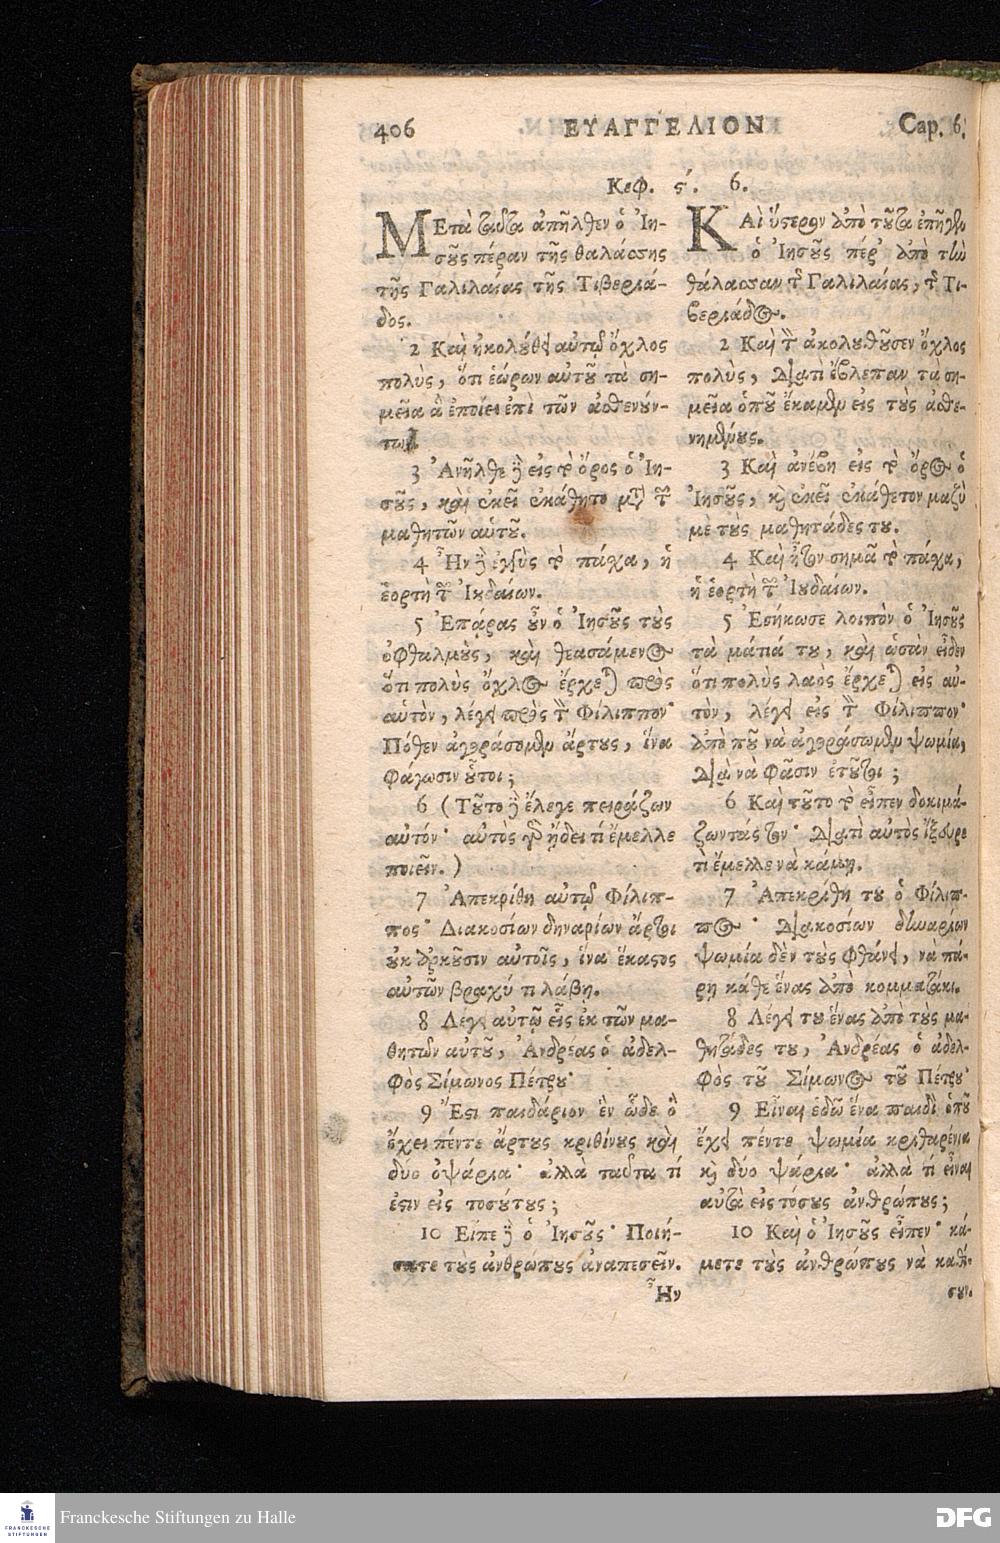 406 ΕΥΑΓΓΕΛΙΟΝ Cap. 6.
Κεφ. ϛ΄. 6.
ΜΕτὰ ταῦτα ἀπῆλθεν ὁ Ἰη-
σοῦς πέραν τῆς θαλάσσης
τῆς Γαλιλαίας τῆς Τιβεριά-
δος.
2 Καὶ ἠκολούθει αὐτῷ ὄχλος
πολὺς, ὅτι ἑώρων αὐτοῦ τὰ ση-
μεῖα ἃ ἐποίει ἐπὶ τῶν ἀσθενούν-
των.
3 Ἀνῆλθε δὲ εἰς τὸ ὄρος ὁ Ἰη-
σοῦς, καὶ ἐκεῖ ἐκάθητο μετὰ τῶν
μαθητῶν αὑτοῦ.
4 Ἦν δὲ ἐγγὺς τὸ πάσχα, ἡ
ἑορτὴ τῶν Ἰουδαίων.
5 Ἐπάρας οὖν ὁ Ἰησοῦς τοὺς
ὀφθαλμοὺς, καὶ θεασάμενος
ὅτι πολὺς ὄχλος ἔρχεται πρὸς
αὐτὸν, λέγει πρὸς τὸν Φίλιππον·
Πόθεν ἀγοράσομεν ἄρτους, ἵνα
φάγωσιν οὗτοι;
6 (Τοῦτο δὲ ἔλεγε πειράζων
αὐτόν· αὐτὸς γὰρ ᾔδει τί ἔμελλε
ποιεῖν.)
7 Ἀπεκρίθη αὐτῷ Φίλιπ-
πος· Διακοσίων δηναρίων ἄρτοι
οὐκ ἀρκοῦσιν αὐτοῖς, ἵνα ἕκαστος
αὐτῶν βραχύ τι λάβῃ.
8 Λέγει αὐτῷ εἷς ἐκ τῶν μα-
θητῶν αὐτοῦ, Ἀνδρέας ὁ ἀδελ-
φὸς Σίμωνος Πέτρου·
9 Ἔστι παιδάριον ἓν ὧδε ὃ
ἔχει πέντε ἄρτους κριθίνους καὶ
δύο ὀψάρια· ἀλλὰ ταῦτα τί
ἐστιν εἰς τοσούτους;
10 Εἶπε δὲ ὁ Ἰησοῦς· Ποιή-
σατε τοὺς ἀνθρώπους ἀναπεσεῖν.
Ἦν
ΚΑὶ ὕστερον ἀπὸ τοῦτα ἐπῆγεν
ὁ Ἰησοῦς πέρ' ἀπὸ τὴν
θάλασσαν τῆς Γαλιλαίας, τῆς Τι-
βεριάδος.
2 Καὶ τὸν ἀκολουθοῦσεν ὄχλος
πολὺς, διατὶ ἔβλεπαν τὰ ση-
μεῖα ὁποῦ ἔκαμεν εἰς τοὺς ἀσθε-
νημένους.
3 Καὶ ἀνέβη εἰς τὸ ὄρος ὁ
Ἰησοῦς, καὶ ἐκεῖ ἐκάθετον μαζὺ
μὲ τοὺς μαθητάδες του.
4 Καὶ ἦτον σημᾶ τὸ πάσχα,
ἡ ἑορτὴ τῶν Ἰουδαίων.
5 Ἐσήκωσε λοιπὸν ὁ Ἰησοῦς
τὰ μάτιά του, καὶ ὡσὰν εἶδεν
ὅτι πολὺς λαὸς ἔρχεται εἰς αὐ-
τὸν, λέγει εἰς τὸν Φίλιππον·
Ἀπὸ ποῦ νὰ ἀγοράσωμεν ψωμία,
διὰ νὰ φᾶσιν ἐτοῦτοι;
6 Καὶ τοῦτο τὸ εἶπεν δοκιμά-
ζωντάς τον· διατὶ αὐτὸς ἤξευρε
τὶ ἔμελλε νὰ κάμῃ.
7 Ἀπεκρίθη του ὁ Φίλιπ-
πος· Διακοσίων δηναρίων
ψωμία δὲν τοὺς φθάνει, νὰ πά-
ρῃ κάθε ἕνας ἀπὸ κομματάκι.
8 Λέγει του ἕνας ἀπὸ τοὺς μα-
θητάδες του, Ἀνδρέας ὁ ἀδελ-
φὸς τοῦ Σίμωνος τοῦ Πέτρου·
9 Εἶναι ἐδῶ ἕνα παιδὶ ὁποῦ
ἔχει πέντε ψωμία κριθαρένια
καὶ δύο ψάρια· ἀλλὰ τί εἶναι
αὐτὰ εἰς τόσους ἀνθρώπους;
10 Καὶ ὁ Ἰησοῦς εἶπεν· κά-
μετε τοὺς ἀνθρώπους νὰ καθί-
σουν.
FRANCKESCHE
STIFTUNGEN
Franckesche Stiftungen zu Halle
DFG